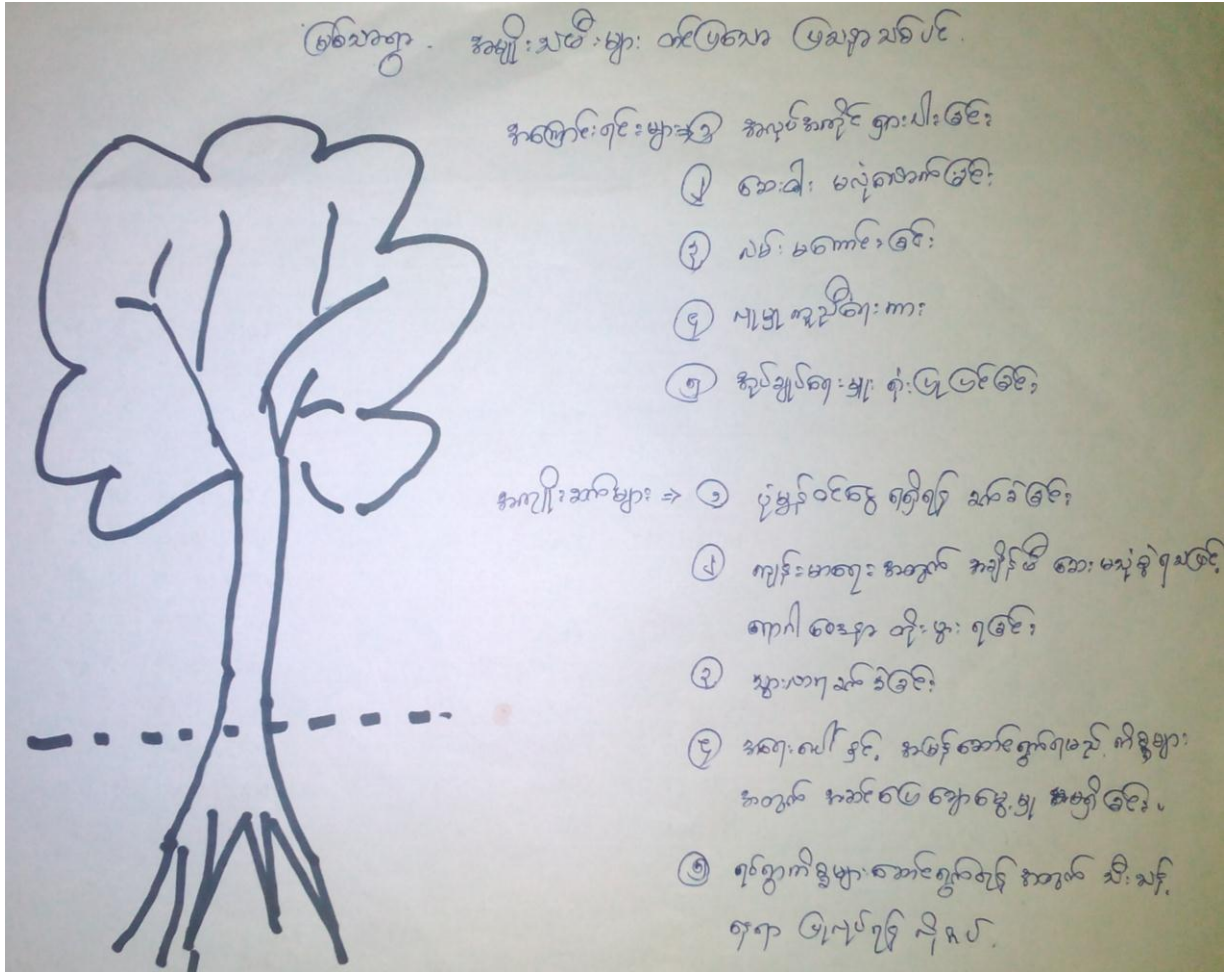 မြစ်သာရွာ . အမျိုးသမီးများ တင်ပြသော ပြဿနာသစ်ပင်.
အကြောင်းရင်းများ⇒ ၁ အလုပ်အကိုင် ရှားပါးခြင်း
၂ ဆေးဝါး မလုံလောက်ခြင်း
၃ လမ်းမကောင်းခြင်း
၄ လူမှုကူညီရေးကား
၅ အုပ်ချုပ်ရေးမှူးရုံး ပြုပြင်ခြင်း
အကျိုးဆက်များ ⇒ ၁ ပုံမှန်ဝင်ငွေ ရရှိရန် ခက်ခဲခြင်း
၂ ကျန်းမာရေးအတွက် အချိန်မီ ဆေးမသုံးစွဲရသဖြင့်
ရောဂါ ဝေဒနာ တိုးပွားရခြင်း
၃ သွားလာရခက်ခဲခြင်း
၄ အရေးပေါ်နှင့် အမြန်ဆောင်ရွက်ရမည့် ကိစ္စများ
အတွက် အဆင်ပြေချောမွေ့မှု မရှိခြင်း.
၅ ရပ်ရွာကိစ္စများဆောင်ရွက်ရန် အတွက် သီးသန့်
နေရာ ပြုလုပ်ရန် လိုအပ်.